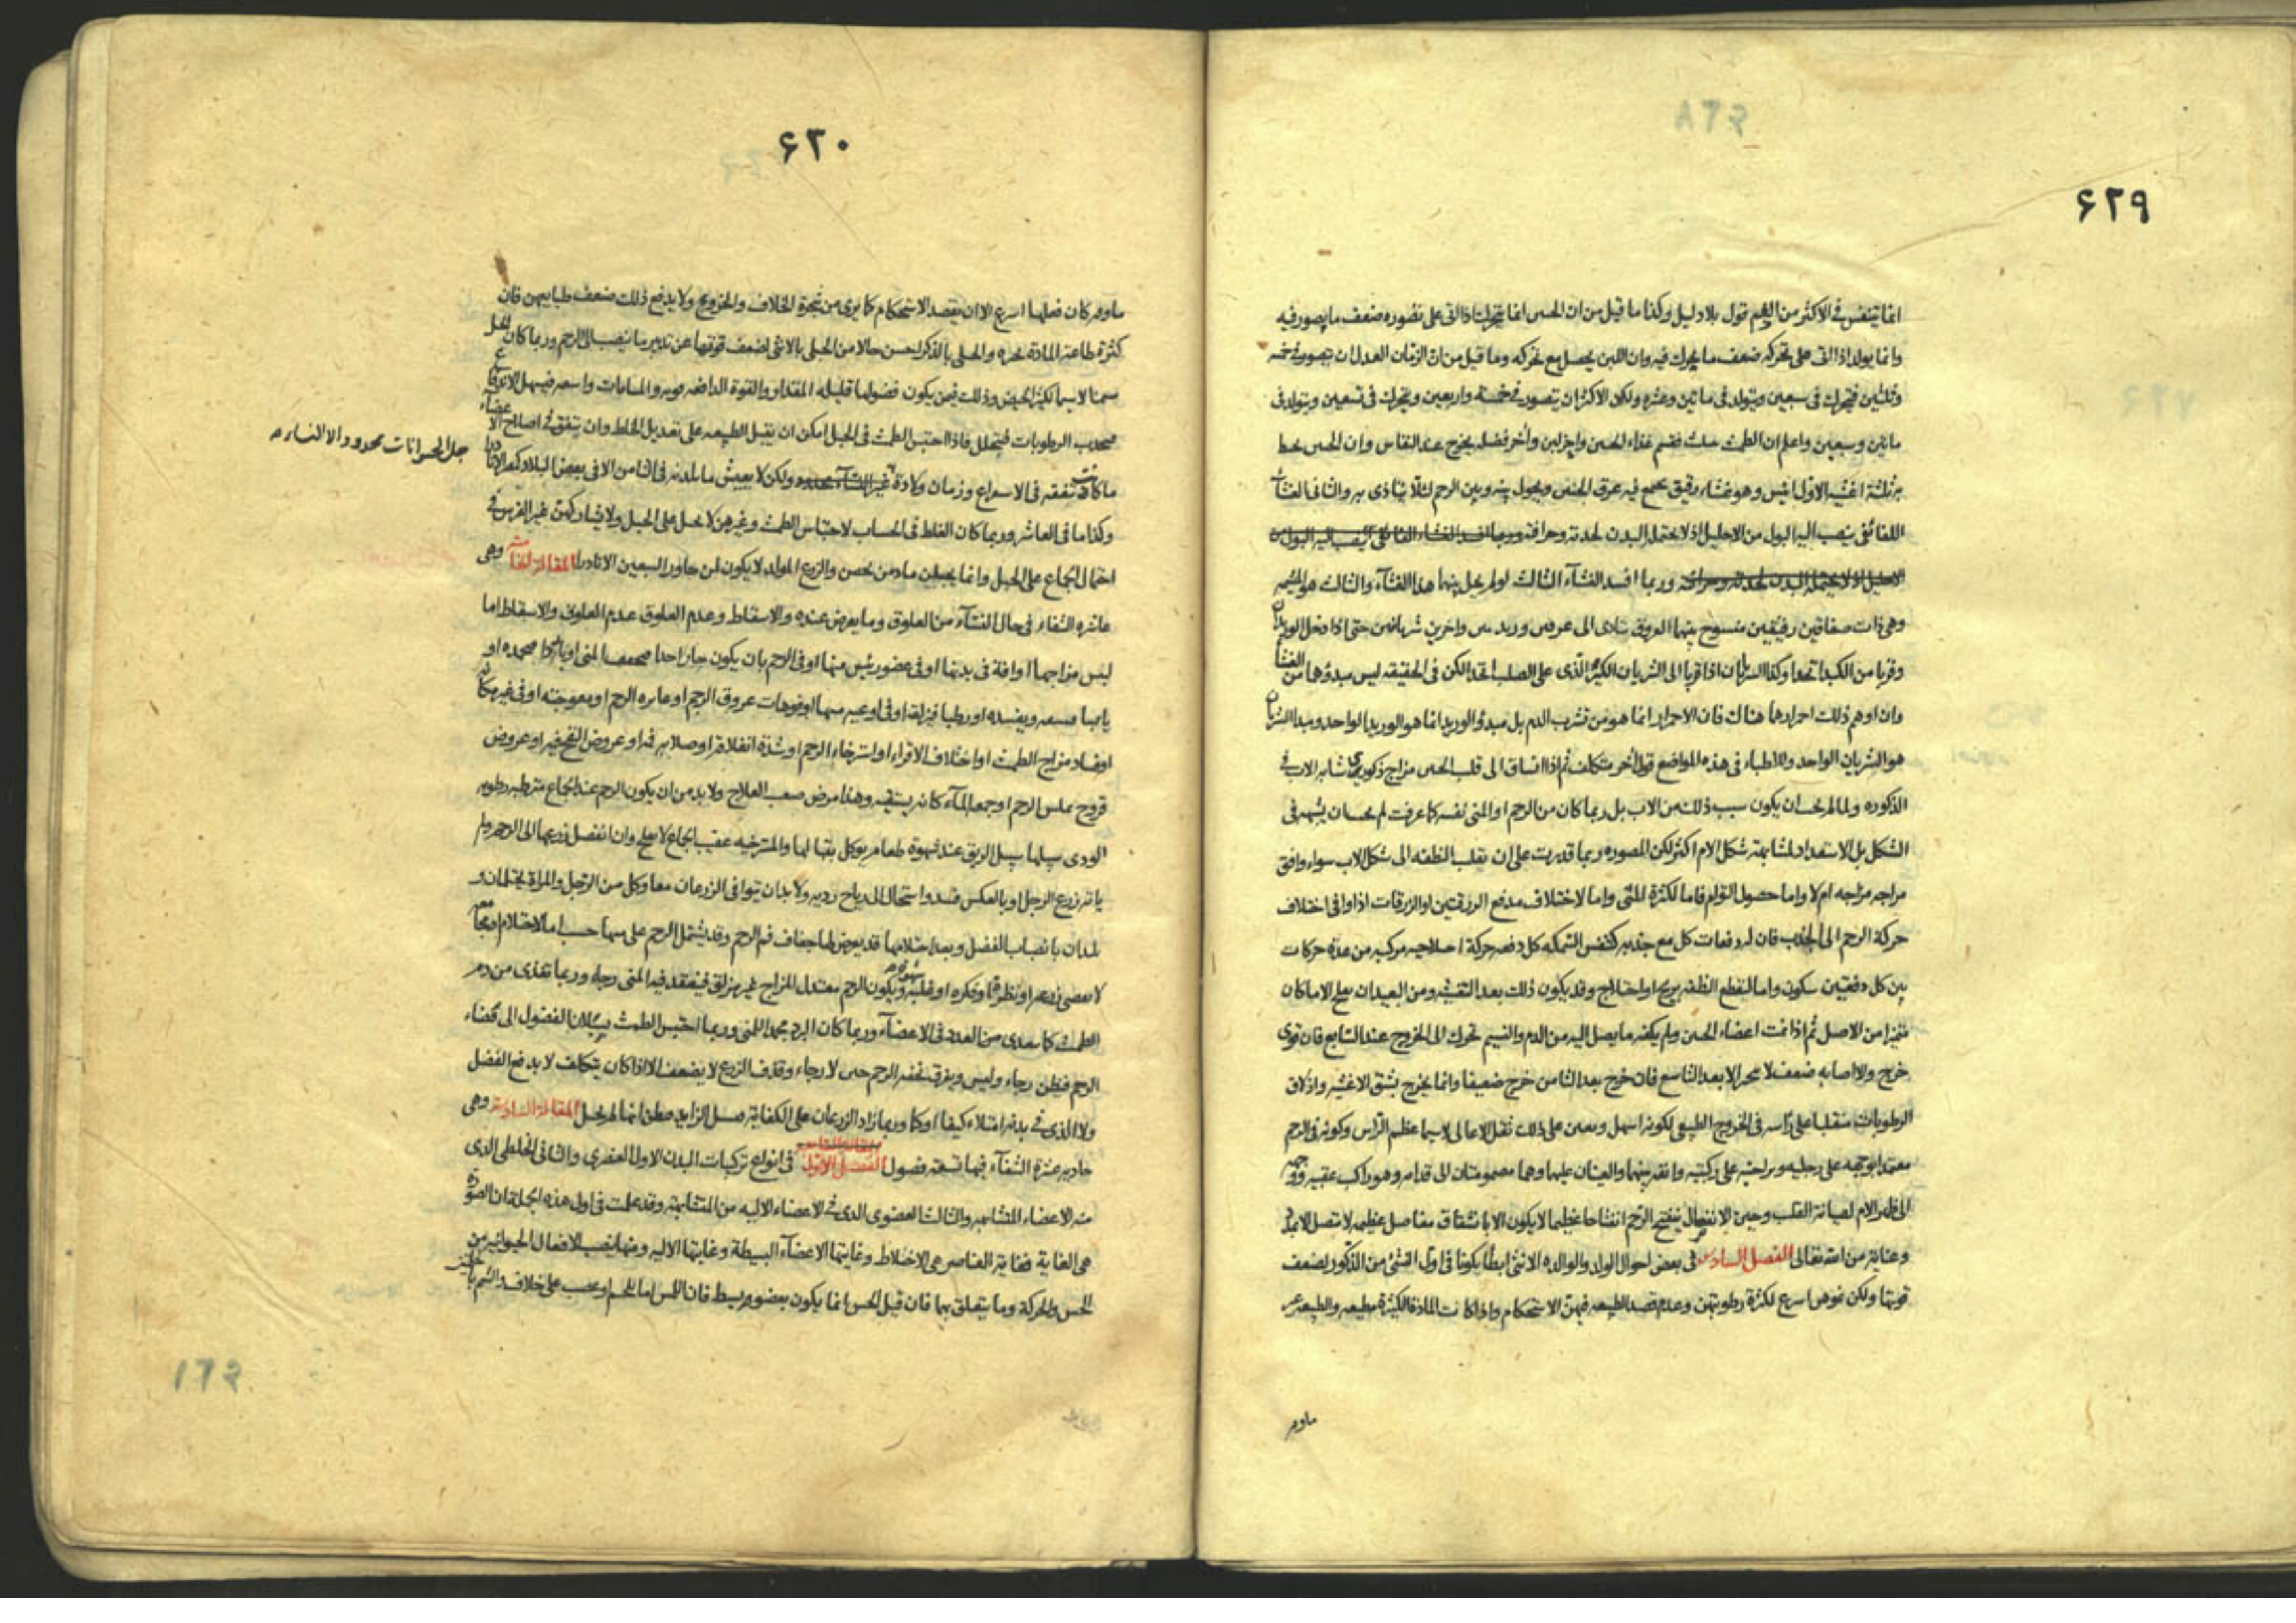 ۶۲۹
انما يتنفس فى الاكثر من الفم قول بلا دليل وكذا ما قيل من ان الجنين انما يتحرك اذا اتى على تصوره ضعف ما يصور فيه
وانما يولد اذا اتى على تحركه ضعف ما يحرك فيه وان اللبن يحصل مع تحركه وما قيل من ان الزمان العدل ان يتصور فى خمسه
وثلثين فيتحرك فى سبعين ويتولد فى ماتين وعشره ولكن الاكثر ان يتصور فى خمسة واربعين ويتحرك فى تسعين ويتولد فى
ماتين وسبعين واعلم ان الطمث فقسم غذاء الجنين واخر لبن واخر فضل يخرج عند النفاس وان الجنين يحيط
به ثلثة اغشيه الاول انفس وهو غشاء رقيق يجمع فيه عرق الجنين ويحول بينه وبين الرحم لئلا يتاذى به والثانى الغشاء
اللفائفى ينصب اليه البول من الاحليل اذ لا يحتمله البدن لحدته وحرافته وربما افسد الغشاء ينصب اليه البول من
الاحليل اذ لا يحتمله البدن لحدته وحرافته وربما افسد الغشاء الثالث لو لم يحل بينهما هذا الغشاء والثالث هو المشيمه
وهى ذات صفاقين رقيقين منسوج بينهما العروق تتادى الى عرقين وريدين واخرين شريانين حتى اذا دخل الوريدان
وقربا من الكبد اتحدا وكذا الشريانان اذا قربا الى الشريان الكبير الذى على الصلب اتحدا لكن فى الحقيقه ليس مبدؤها من الغشاء
وان اوهم ذلك احمرارها هناك فان الاحمرار انما هو من تشرب الدم بل مبدؤ الوريد انما هو الوريد الواحد ومبدا الشريان
هو الشريان الواحد وللاطباء فى هذه المواضع قول اخر متكلف ثم اذا انساق الى قلب الجنين مزاج ذكورى شابه الاب فى
الذكوره ولما لم يجب ان يكون سبب ذلك من الاب بل ربما كان من الرحم او المنى نفسه كما عرفت لم يجب ان يشبهه فى
الشكل بل الاستعداد لمشابهة شكل الام اكثر لكن المصوره ربما قدرت على ان تقلب النطفه الى شكل الاب سواء وافق
مزاجه مزاجه ام لا واما حصول التوام فاما لكثرة المنى واما لاختلاف مدفع الزرقتين او الزرقات اذا وافى اختلاف
حركة الرحم الى الجذب فان له دفعات كل مع جذبه كتنفس السمكه كل دفعه حركة اختلاجيه مركبه من عدة حركات
بين كل دفعتين سكون واما لتقطع النطفه بريح او اختلاج وقد يكون ذلك بعد التشبث ومن البعيد ان يفلح الا ما كان
متميزا من الاصل ثم اذا تمت اعضاء الجنين ولم يكفه ما يصل اليه من الدم والنسيم تحرك الى الخروج عند السابع فان قوى
خرج والا اصابه ضعف لا ينجبر الا بعد التاسع فان خرج بعد الثامن خرج ضعيفا وانما يخرج بشق الاغشيه وازلاق
الرطوبات منقلبا على راسه فى الخروج الطبيعى لكونه اسهل ويعين على ذلك ثقل الاعالى لا سيما عظم الراس وكونه فى الرحم
معتمدا بوجهه على رجليه وبراحتيه على ركبتيه وانفه بينهما والعينان عليهما وهما مضمومتان الى قدامه وهو راكب عقبيه ووجهه
الى ظهر الام لصيانة القلب وحين الانفصال ينفتح الرحم انفتاحا عظيما لا يكون الا بانشقاق مفاصل عظيمه لا تتصل الا بمدد
وعناية من الله تعالى الفصل السادس فى بعض احوال الولد والوالده الانثى ابطأ تكونا فى اول النشئ من الذكور لضعف
قوتها ولكن نموهن اسرع لكثرة رطوبتهن وعدم قصد الطبيعه فيهن الاستحكام واذا كانت المادة الكثيرة مطيعه والطبيعه عير
ماوم
۶۳۰
ماومه كان فعلها اسرع الا ان يقصد الاستحكام كما يرى من شجرة الخلاف والخروع ولا يدفع ذلك ضعف طبايعهن فان
كثرة طاعة المادة تجبره والحبلى بالذكر احسن حالا من الحبلى بالانثى لضعف قوتها عن تدبير ما ينصب الى الرحم وربما كان الحبل
سمنا لا سيما لكثير الحيض وذلك فيمن يكون فضولها قليلة المقدار والقوة الدافعه قويه والمسامات واسعه فيسهل الاعراق
الرطوبات فيتحلل فاذا احتبس الطمث فى الحبل امكن ان تقبل الطبيعه على تعديل الخلط وان يتفق فى اصلاح الاعضاء
ما كانت تنفقه فى الاسراع وزمان ولادة غير النساء محدود ولكن لا يعيش ما يلدنه فى الثامن الا فى بعض البلاد كمصر الا نادرا
جل الحيوانات محدود الا النساء
وكذا ما فى العاشر وربما كان الغلط فى الحساب لاحتباس الطمث وغيرهن لا يحبل على الحبل ولا يشاركهن غير الفرس فى
احتمال الجماع على الحبل وانما يحبلن ما دمن يحضن والزرع المولد لا يكون لمن جاوز السبعين الا نادرا المقالة الخامسة وهى
عاشره الشفاء فى حال النساء من العلوق وما يعرض عنده والاسقاط وعدم العلوق عدم العلوق والاسقاط اما
لسوء مزاجهما او افة فى بدنهما او فى عضو رئيس منهما او فى الرحم بان يكون حارا مجففا للمنى او باردا مجمدا او
يابسا ويفسده او رطبا فيزلقه او فى اوعيه منيهما او فوهات عروق الرحم او الرحم او معوجته او فى غيرها كان
او فساد مزاج الطمث او اختلاف الاقراء او استرخاء الرحم او شدة انغلاقه او صلابه فمه او عروض النفخ فيه او عروض
قروح تملس الرحم او جمعه الماء كانه يستقيه وهذا مرض صعب العلاج ولا بد من ان يكون الرحم عند الجماع مترطبه رطوبه
الودى سيلها سيل الريق عند شهوة طعام يوكل بقبالها والمسترخيه عقيب الجماع لا تعلق وان انفصل زرعها الى الرحم ولم
ياته زرع الرجل او بالعكس فسد واستحال الى رياح رديه ولا بد ان يتوافى الزرعان معا وكل من الرجل والمراة يحتلمان و
يلدان بانصباب الفضل وبعد احتلامها قد يعرض لها جفاف فم الرحم وقد يشتمل الرحم على منيها حسب اما لاحتلام او مجامعه
لا تفضى زرعه او نظر قبلها وفكره او غلبة شهوة ويكون الرحم معتدل المزاج غير مزلق فينعقد فيه المنى رجاء وربما تغذى من دم
الطمث كما يغتذى من الغدد فى الاعضاء وربما كان البرد يجمد المنى وربما احتبس الطمث بسيلان الفضول الى فضاء
الرحم فيظن رجاء وليس ويفرق بخفة الرحم حين لا رجاء وقذف الزرع لا يضعف الا اذا كان يتكلف لا بدفع الفضل
ولا الذى فى بدنه امتلاء كيفا او كما وربما زاد الزرعان على الكفاية فسال الزايد فظن انها لم تحبل المقالة السادسة وهى
حاديه عشرة الشفاء فيها تسعة فصول الفصل الاول فى انواع تركيبات البدن الاول العنصرى والثانى الخلطى الذى
منه الاعضاء المتشابهه والثالث العضوى الذى فى الاعضاء الاليه من المتشابهة وقد علمت فى اول هذه الجمله ان الصورة
هى الغاية فغاية العناصر هى الاخلاط وغايتها الاعضاء البسيطة وغايتها الاليه ومنها ينصب الافعال الحيوانيه من
الحس والحركة وما يتعلق بها فان قيل الحس انما يكون بعضو بسيط فان اللمس اما بلحم او عصب على خلاف والشم
۱۶۴